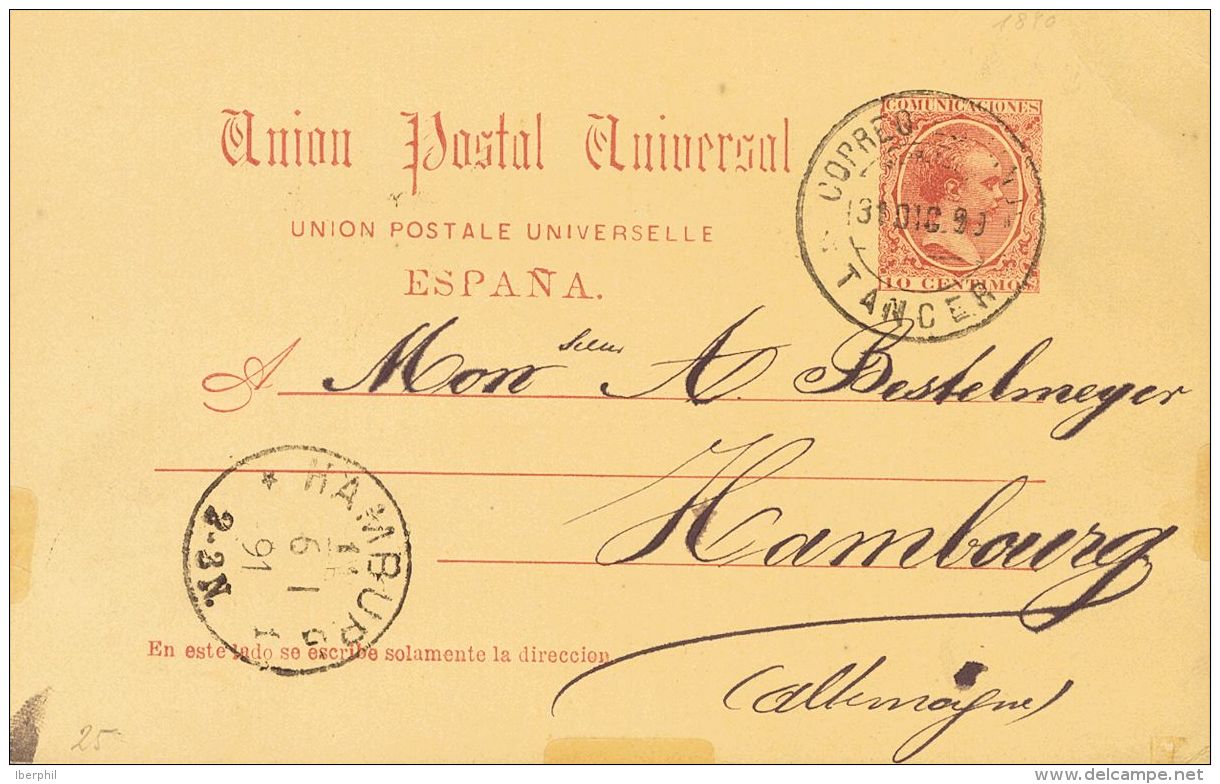 1890
COMUNICACIONES
Union Postal Universal
UNION POSTALE UNIVERSELLE
ESPAÑA.
10 CENTIMOS
CORREO
31 DIC. 90
TANGER
A Monsieur A. Bestelmeyer
Hambourg
(Allemagne)
* HAMBURG 1
6 1
91
2-3N.
En este lado se escribe solamente la direccion
25
Iberphil
delcampe.net